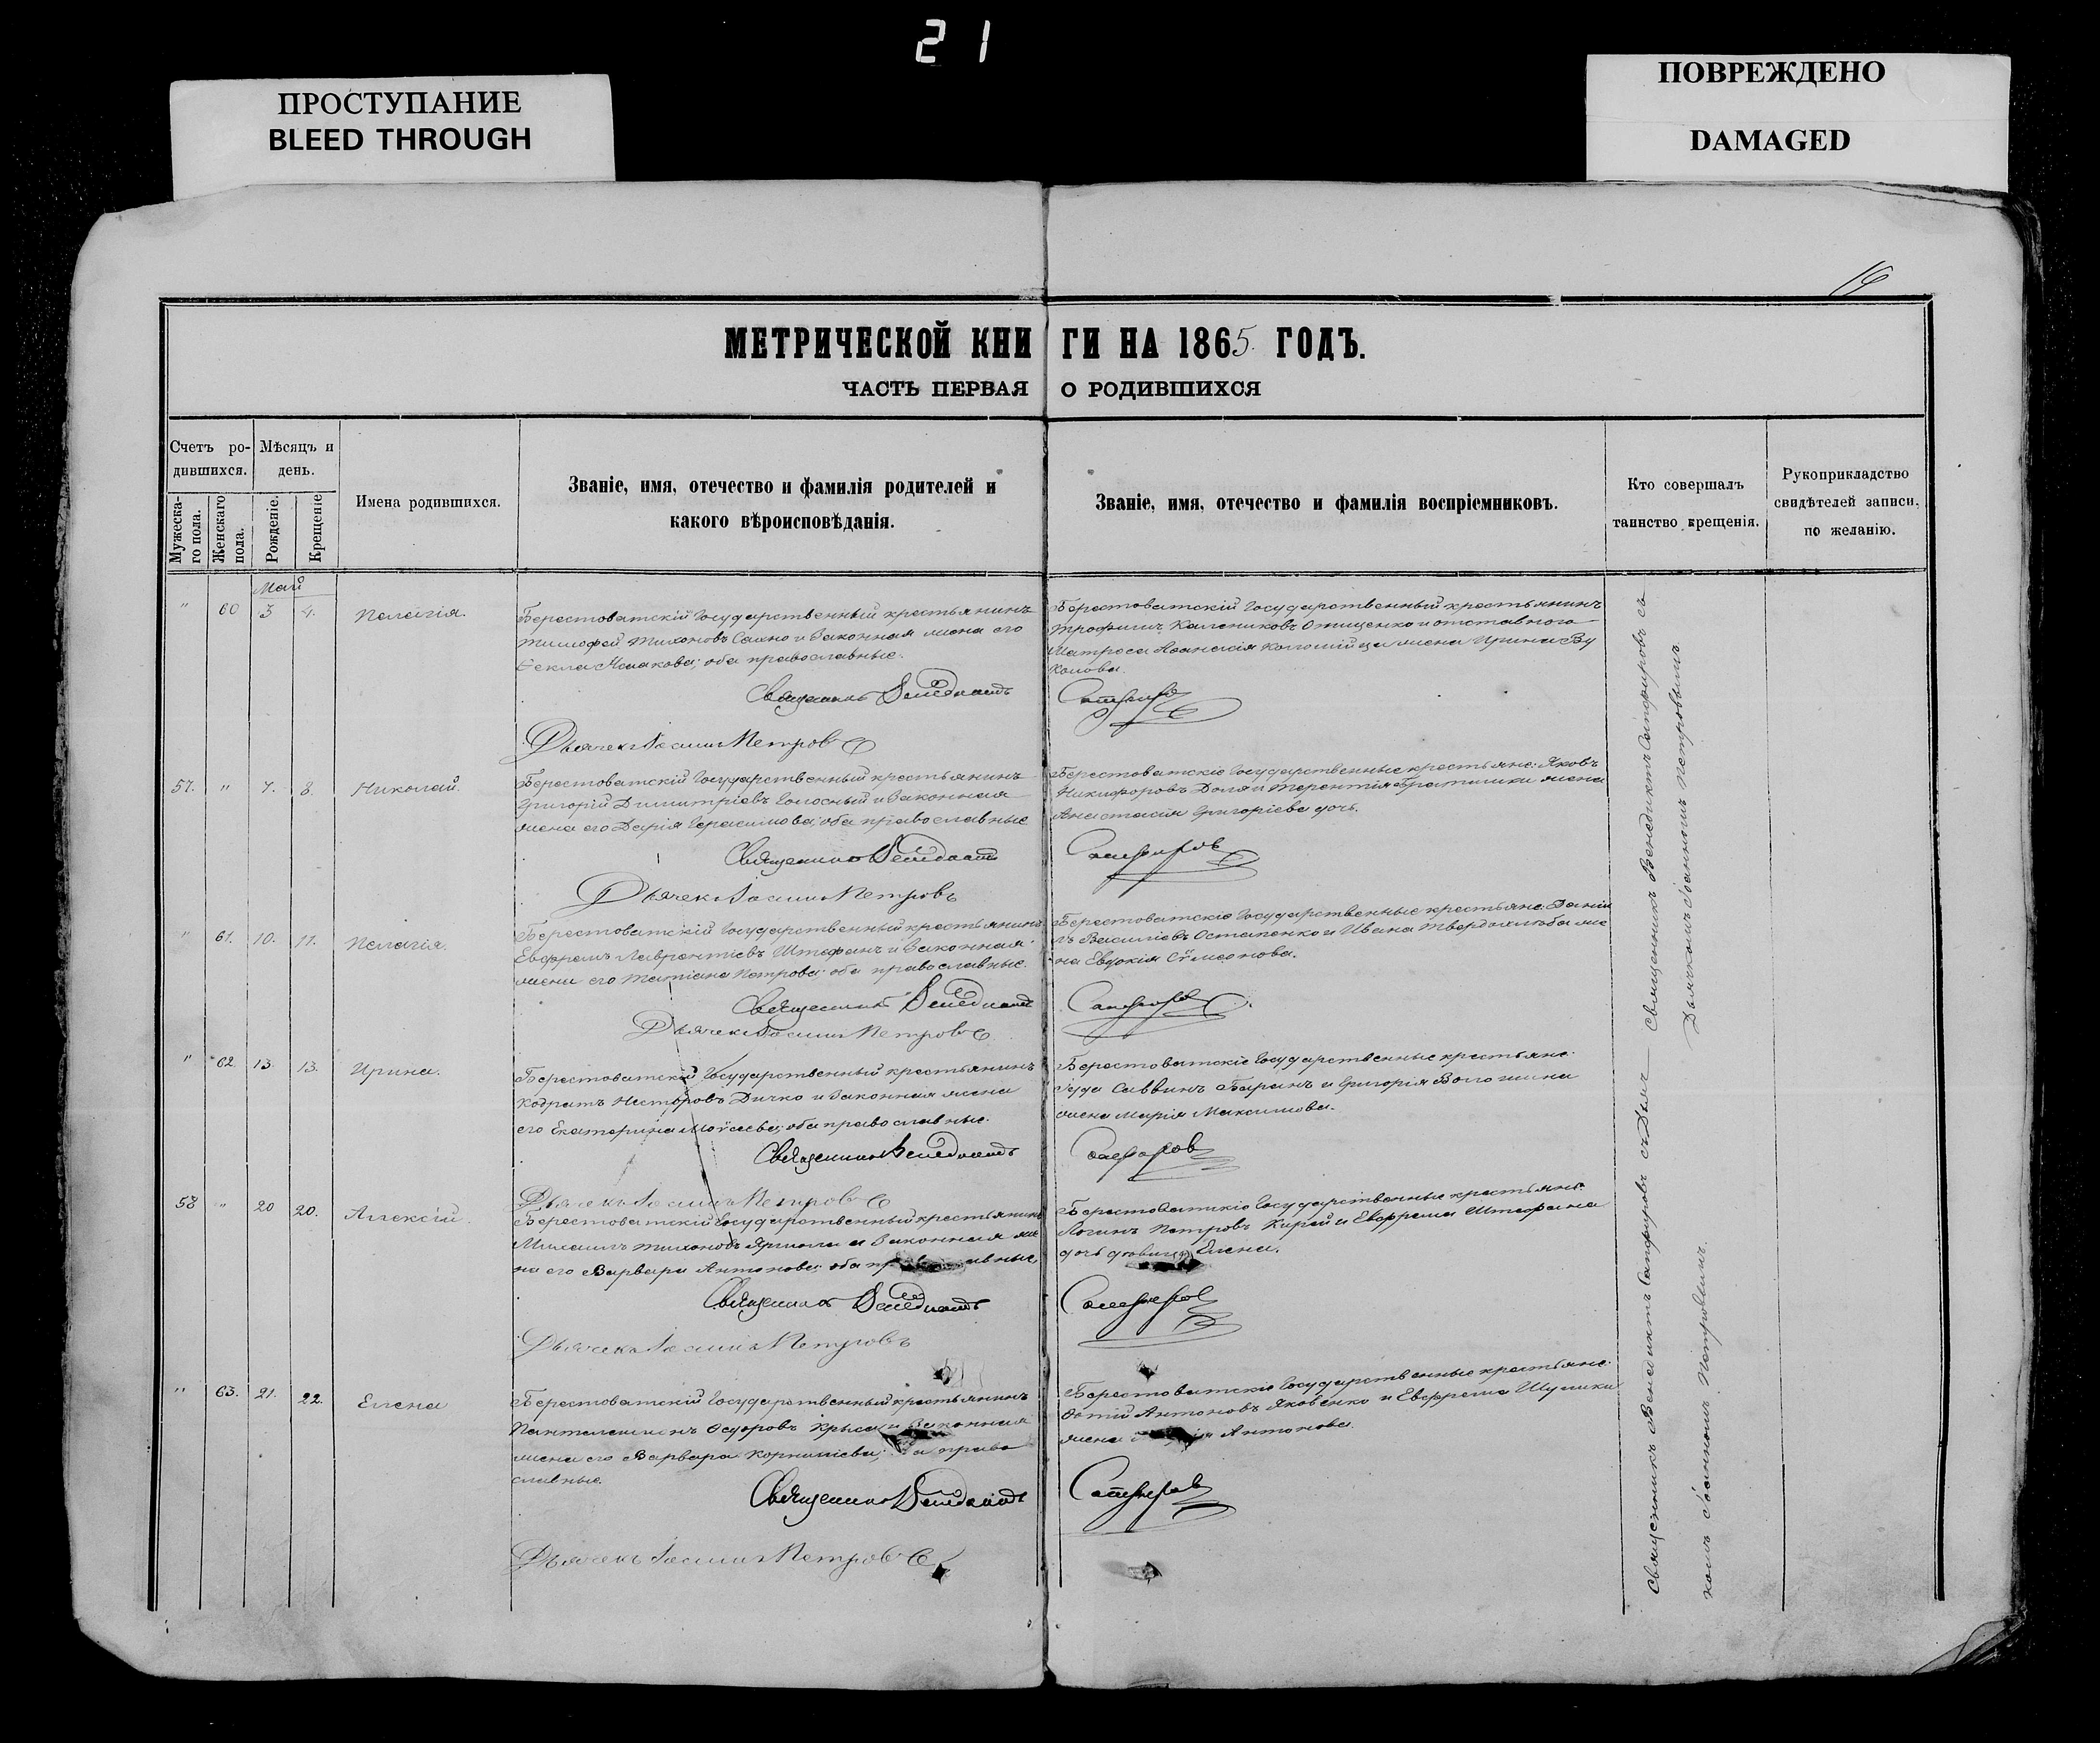 21
ПРОСТУПАНИЕ
BLEED THROUGH
ПОВРЕЖДЕНО
DAMAGED
МЕТРИЧЕСКОЙ КНИГИ НА 1865 ГОДЪ.
ЧАСТЬ ПЕРВАЯ О РОДИВШИХСЯ
Счетъ ро-
дившихся.
Мѣсяцъ и
день.
Мужеска-
го пола.
Женскаго
пола.
Рожденіе.
Крещеніе
Имена родившихся.
Званіе, имя, отечество и фамилія родителей и
какого вѣроисповѣданія.
Званіе, имя, отечество и фамилія воспріемниковъ.
Кто совершалъ
таинство крещенія.
Рукоприкладство
свидѣтелей записи,
по желанію.
Май
" 60 3 4. Пелагія.
Берестоватскій Государственный крестьянинъ
Тимофей Тихоновъ и законная жена его
Ѳекла; оба православные.
Берестоватскій Государственный крестьянинъ
Калениковъ Онищенко и отставного
Матроса жена Ирина Ву
колова.
Священникъ Венедиктъ Сапфировъ
Дьячекъ Іоаннъ Петровъ
57. " 7. 8. Николай.
Берестоватскій Государственный крестьянинъ
Григорій Димитріевъ Голосный и законная
жена его Дарія Герасимова; оба православные
Берестоватскіе Государственные крестьяне: Яковъ
Никифоровъ Доля и Терентія жена
Анастасія Григоріева дочь.
Священникъ Венедиктъ Сапфировъ
Дьячекъ Іоаннъ Петровъ
" 61. 10. 11. Пелагія.
Берестоватскій Государственный крестьянинъ
Евфремъ Лаврентіевъ Штефанъ и законная
жена его Татіана Петрова; оба православные.
Берестоватскіе Государственные крестьяне: Даніи
лъ Василіевъ Остапенко и Ивана Твердохлѣба же
на Евдокія Сѵмеонова.
Священникъ Венедиктъ Сапфировъ
Дьячекъ Іоаннъ Петровъ
" 62. 13. 13. Ирина.
Берестоватскій Государственный крестьянинъ
Кодратъ Несторовъ Дичко и законная жена
его Екатерина Моѵсеева; оба православные.
Берестоватскіе Государственные крестьяне:
Саввинъ Баранъ и Григорія жена
Марія Максимова.
Священникъ Венедиктъ Сапфировъ
Дьячекъ Іоаннъ Петровъ
58 " 20 20. Алексій.
Берестоватскій Государственный крестьянинъ
Михаилъ Тихоновъ и законная же
на его Варвара Антонова; оба
Берестоватскіе Государственные крестьяне:
Логинъ Петровъ Кирей и Евфрема Штефана
дочь дѣвица Елена.
Священникъ Венедиктъ Сапфировъ
Дьячекъ Іоаннъ Петровъ
" 63. 21. 22. Елена
Берестоватскій Государственный крестьянинъ
Пантелеимонъ Ѳедоровъ и законная
жена его Варвара Корниліева; право
славные.
Берестоватскіе Государственные крестьяне:
Антоновъ Яковенко и Евфрема
жена Антонова.
Священникъ Венедиктъ Сапфировъ
Дьячекъ Іоаннъ Петровъ
Священникъ Венедиктъ Сапфировъ съ Дьяч
комъ Іоанномъ Петровымъ.
Священникъ Венедиктъ Сапфировъ съ
Дьячкомъ Іоанномъ Петровымъ